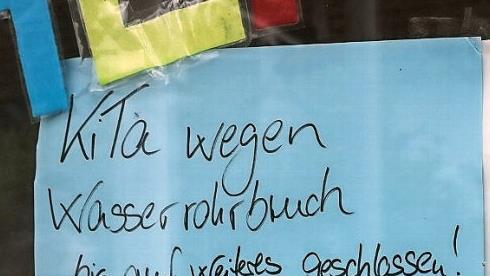 KiTa wegen
Wasserrohrbruch
bis auf weiteres geschlossen!